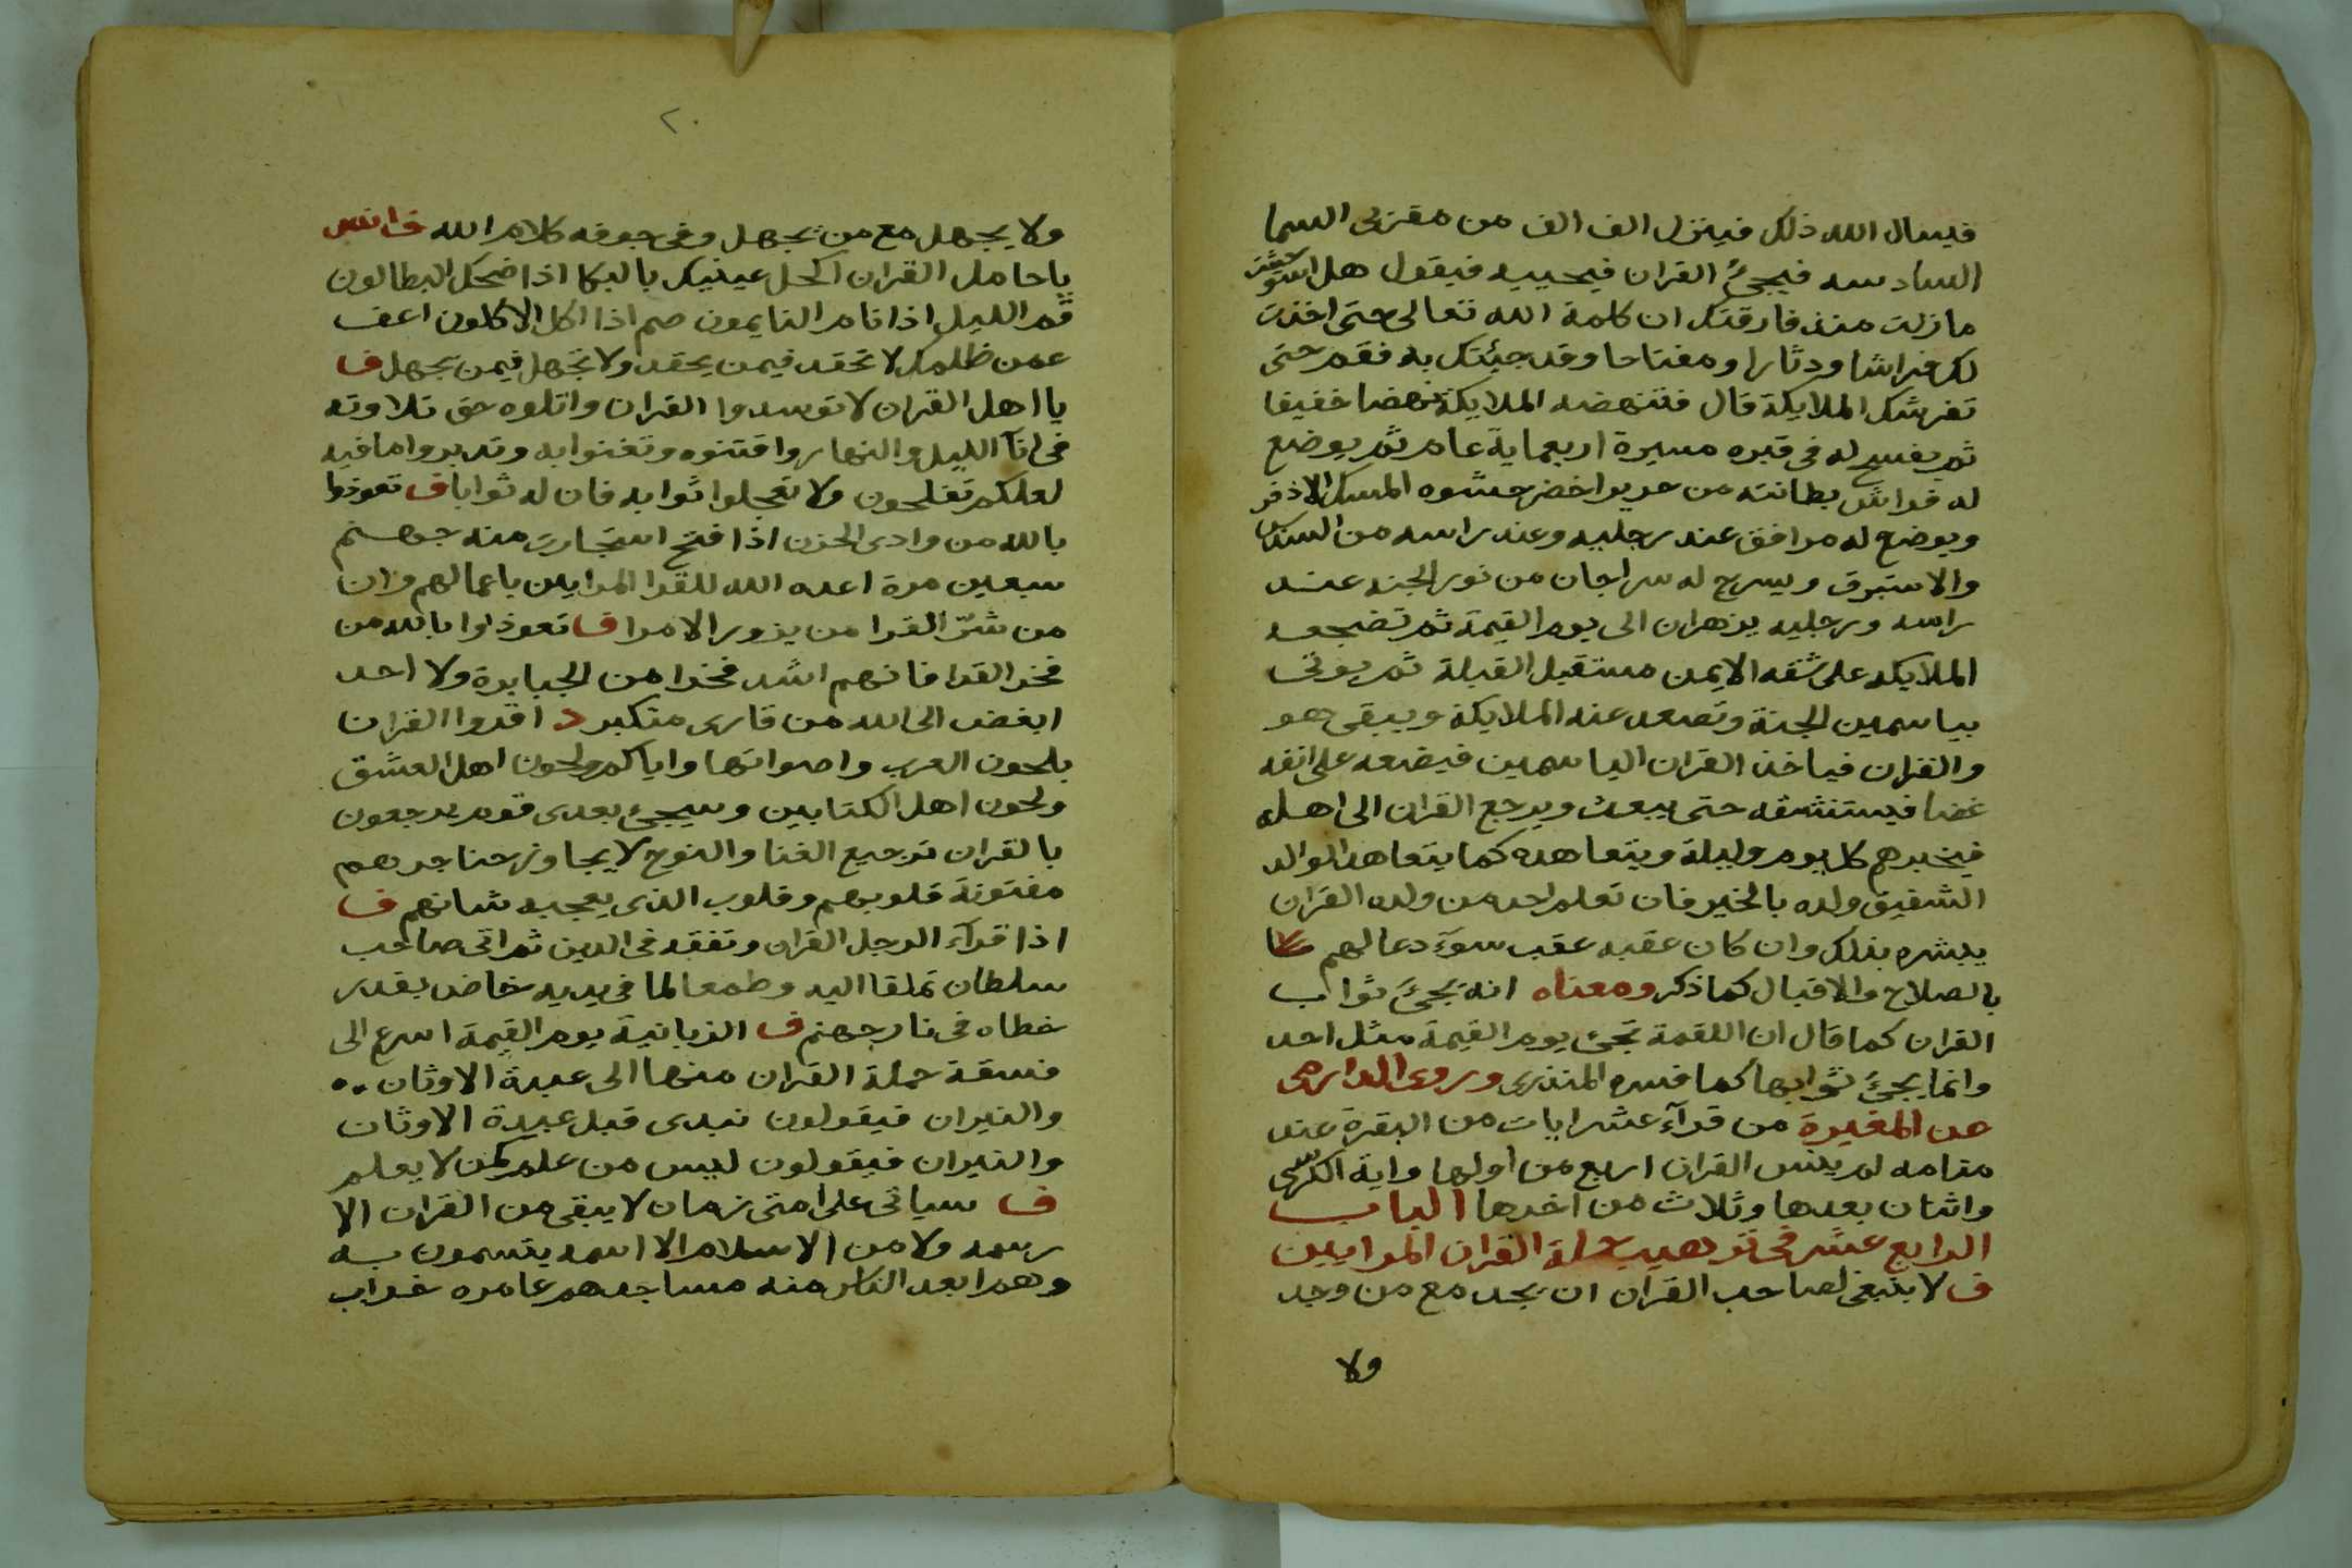 فيسال الله ذلك فينزل الف الف من مقربي السما
السادسه فيجئ القران فيحييه فيقول هل استوحشت
مازلت منذ فارقتك ان كلمة الله تعالى حتى اخذت
لك فراشا ودثارا ومفتاحا وقد جيئتك به فقم حتى
تفرشك الملايكة قال فتنهضه الملايكة نهضا خفيفا
ثم يفسح له في قبره مسيرة اربعماية عام ثم يوضع
له فراش بطانته من حرير اخضر حشوه المسك الاذفر
ويوضع له مرافق عند رجليه وعند راسه من السندس
والاستبرق ويسرج له سراجان من نور الجنه عند
راسه ورجليه يزهران الى يوم القيمة ثم تضجعه
الملايكه على شقه الايمن مستقبل القبلة ثم يوتى
بياسمين الجنة وتصعد عنه الملايكة ويبقى هو
والقران فياخذ القران الياسمين فيضعه على انفه
غضا فيستنشقه حتى يبعث ويرجع القران الى اهله
فيخبرهم كل يوم وليلة ويتعاهده كما يتعاهد الوالد
الشفيق ولده بالخير فان تعلم احد من ولده القران
يبشره بذلك وان كان عقبه عقب سوء دعا لهم
بالصلاح والاقبال كما ذكر ومعناه انه يجئ ثواب
القران كما قال ان اللقمة تجئ يوم القيمة مثل احد
وانما يجئ ثوابها كما فسره المنذرى وروى الدارمى
عن المغيرة من قرآء عشر ايات من البقرة عند
منامه لم ينس القران اربع من اولها واية الكرسى
واثنان بعدها وثلاث من اخرها الباب
الرابع عشر فى ترهيب حملة القران المرايين
ف لا ينبغى لصاحب القران ان يجد مع من وجد
ولا
٢٠
ولا يجهل مع من يجهل وفى جوفه كلام الله ف انس
ياحامل القران اكحل عينيك بالبكا اذا ضحك البطالون
قم الليل اذا نام النايمون صم اذا اكل الاكلون اعف
عمن ظلمك لا تحقد فيمن يحقد ولا تجهل فيمن يجهل ف
يا اهل القران لا توسدوا القران واتلوه حق تلاوته
فى انآ الليل والنهار واقتنوه وتغنوا به وتدبروا ما فيه
لعلكم تفلحون ولا تعجلوا ثوابه فان له ثوابا ف تعوذوا
بالله من وادى الحزن اذا فتح استجارت منه جهنم
سبعين مرة اعده الله للقرا المرايين باعمالهم وان
من شرّ القرا من يزور الامرا ف تعوذوا بالله من
فخر القرا فانهم اشد فخرا من الجبابرة ولا احد
ابغض الى الله من قارى متكبر د اقروا القران
بلحون العرب واصواتها واياكم ولحون اهل العشق
ولحون اهل الكتابين وسيجئ بعدى قوم يرجعون
بالقران ترجيع الغنا والنوح لا يجاوز حناجرهم
مفتونة قلوبهم وقلوب الذى يعجبه شانهم ف
اذا قرآء الرجل القران وتفقه فى الدين ثم اتى صاحب
سلطان تملقا اليه وطمعا لما فى يديه خاض بقدر
خطاه فى نار جهنم ف الزبانية يوم القيمة اسرع الى
فسقة حملة القران منها الى عبدة الاوثان
والنيران فيقولون نبدى قبل عبدة الاوثان
والنيران فيقولون ليس من علم كمن لا يعلم
ف سياتى على امتى زمان لا يبقى من القران الا
رسمه ولا من الاسلام الا اسمه يتسمون به
وهم ابعد الناس منه مساجدهم عامره خراب